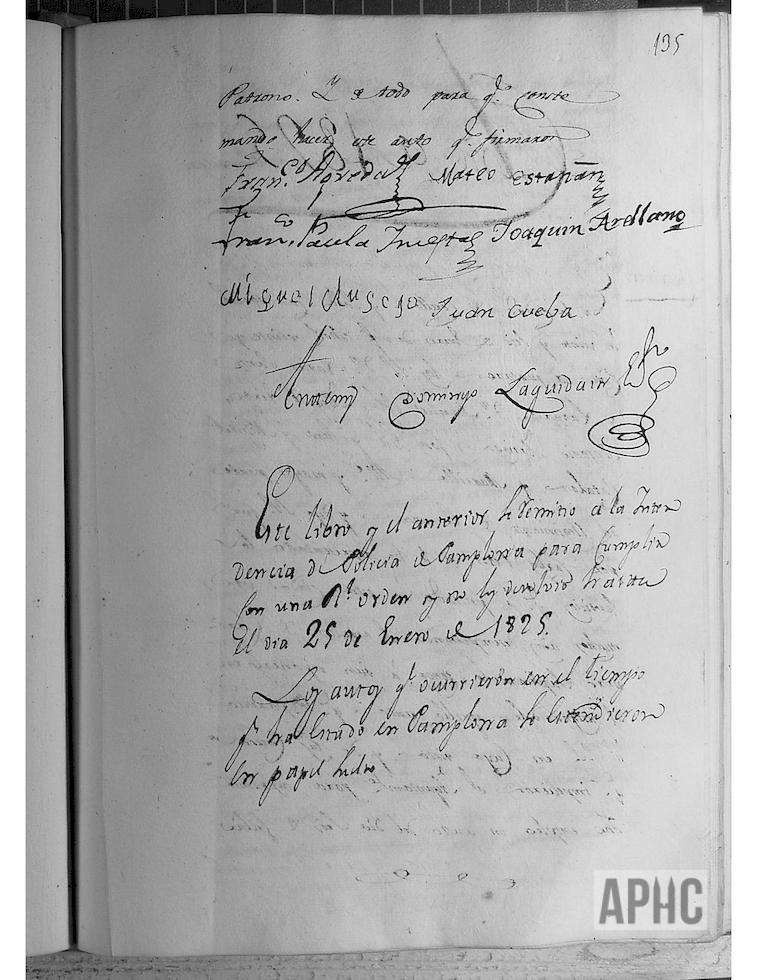 135
Patrono. Y de todo para q.e conste
mandó hacer este auto q.e firmaron
Fran.co Agreda Mateo Estañan
Fran.co Paula Inesta Joaquin Arellano
Miguel Ausejo Juan Cueba
Ante mi Domingo Laquidain, Es.no
Este libro y el anterior, se remitio a la Inten
dencia de Policia de Pamplona para Cumplir
Con una R.l orden y no los debolvió hasta
El dia 25 de Enero de 1825.
Los autos q.e ocurrieron en el tiempo
q.e ha estado en Pamplona se estendieron
en papel suelto
APHC